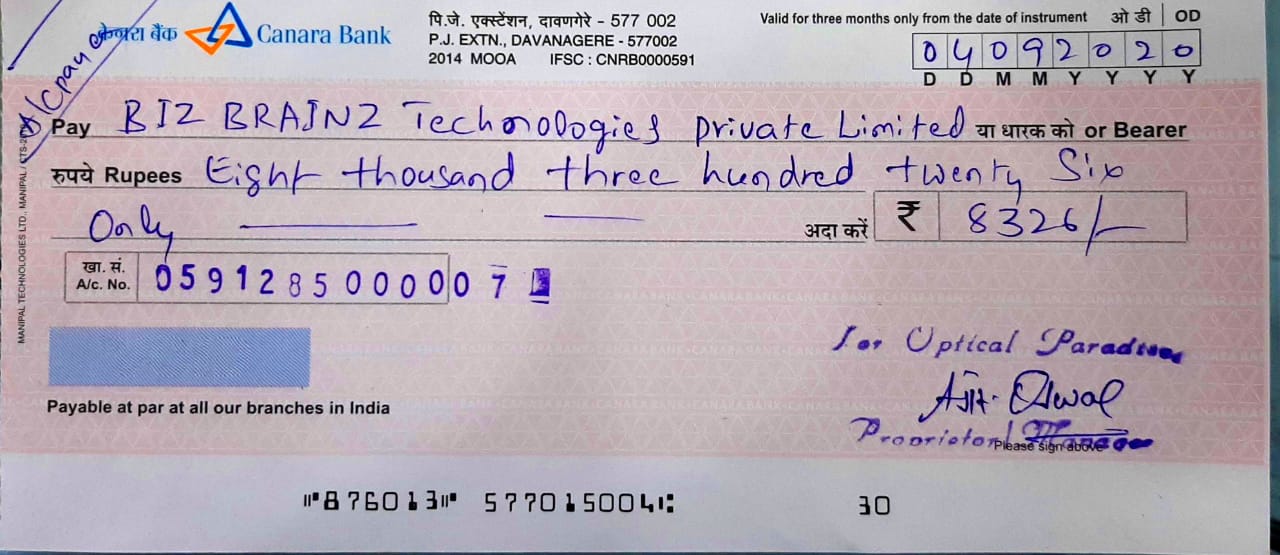 केनरा बैंक Canara Bank
पि.जे. एक्स्टेंशन, दावणगेरे - 577 002
P.J. EXTN., DAVANAGERE - 577002
2014 MOOA IFSC : CNRB0000591
Valid for three months only from the date of instrument ओ डी | OD
04092020
D D M M Y Y Y Y
A/c pay
Pay BIZ BRAINZ Technologies private Limited या धारक को or Bearer
रुपये Rupees Eight thousand three hundred twenty Six
Only अदा करें ₹ 8326/-
खा. सं.
A/c. No. 05912850000071
MANIPAL TECHNOLOGIES LTD., MANIPAL /
For Optical Paradise
Ajit Oswal
Proprietor/Manager
Please sign above
Payable at par at all our branches in India
⑈876013⑈ 577015004⑆ 30